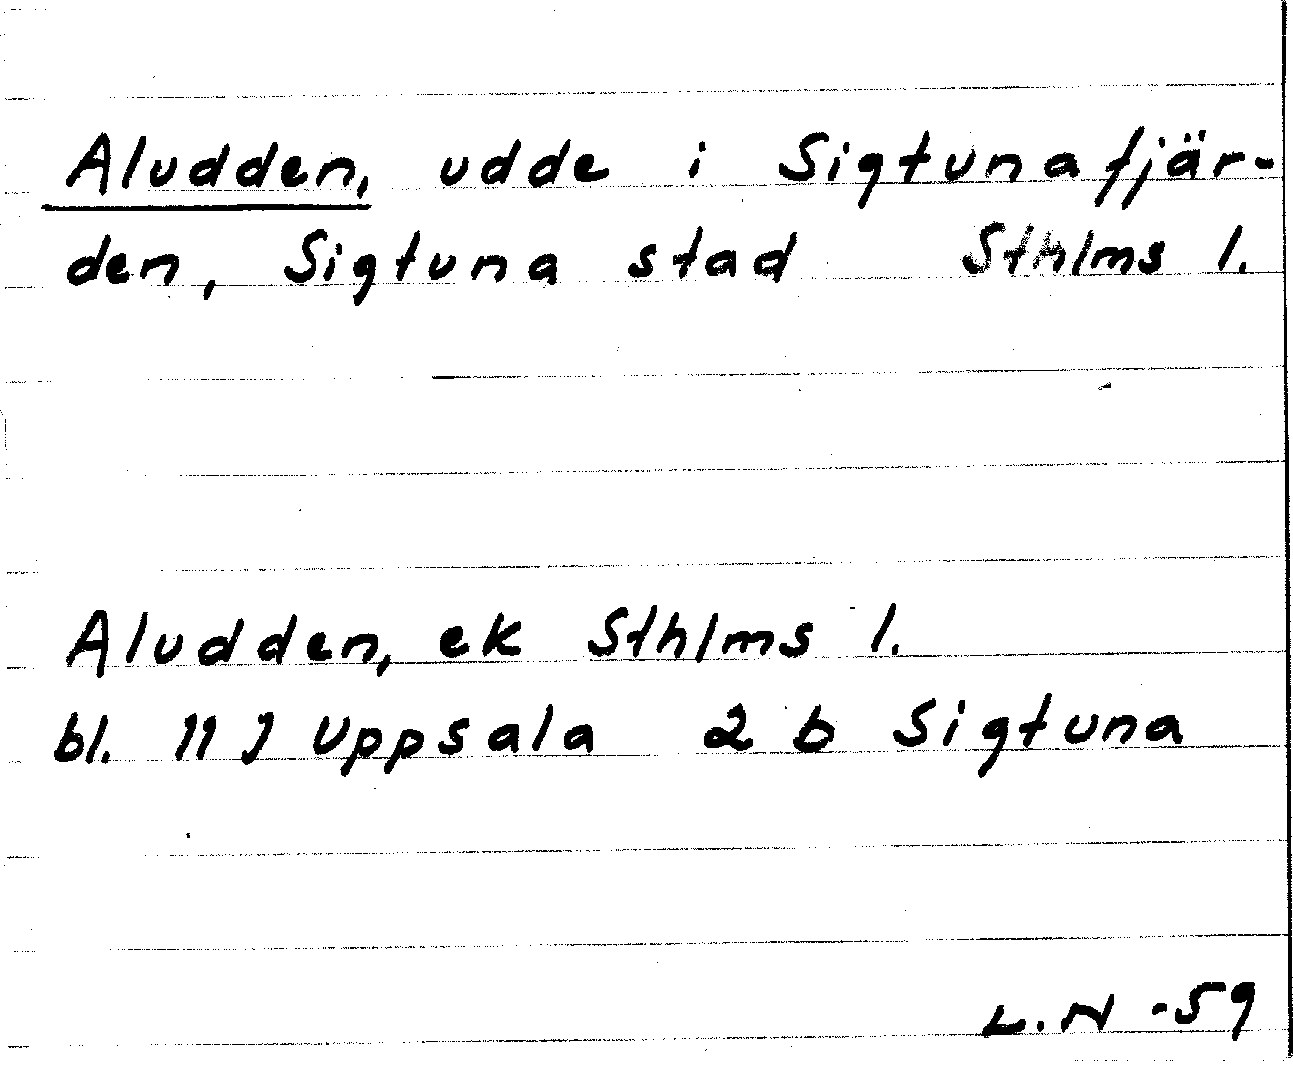 Aludden, udde i Sigtunafjär-
den, Sigtuna stad Sthlms l.
Aludden, ek Sthlms l.
bl. 11 J Uppsala 2 b Sigtuna
L.N -59